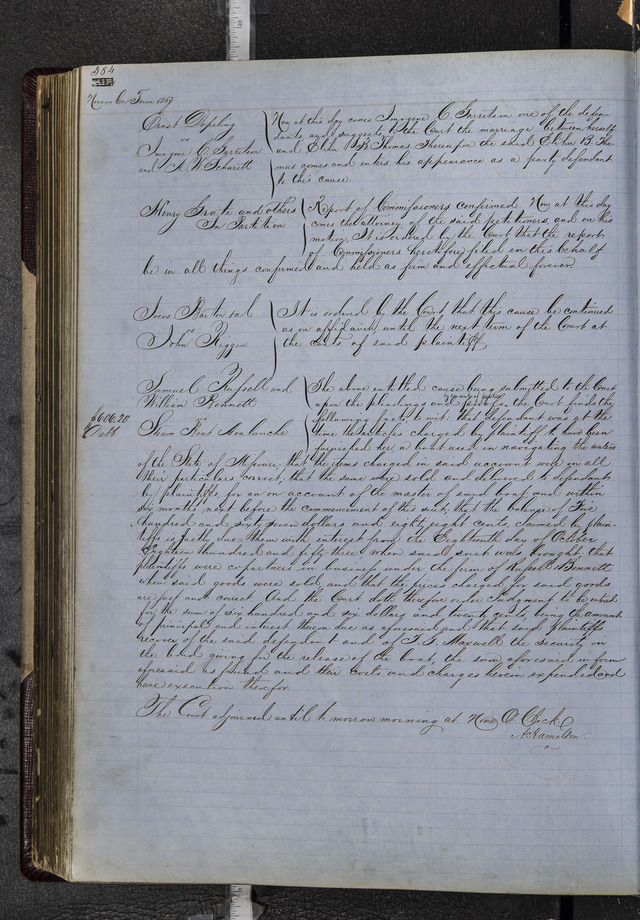 384
November Term 1854
Ernst
vs
Imogine C. Grectian
and A. W Scharitt
Now at this day comes Imogine C. Grectian one of the defen-
dants and suggests to the Court the marriage between herself
and Elihu B Thomas Thereupon the said Elihu B. Tho-
mas comes and enters his appearance as a party defendant
to this cause.
Henry Grote and others
In Partition
Report of Commissioners confirmed Now at this day
comes the attorney of the said petitioners, and on his
motion, It is ordered by the Court that the report
of Commissioners heretofore filed in this behalf
be in all things confirmed and held as firm and effectual forever
Barton et al
vs
John Riggin
It is ordered by the Court that this cause be continued
as on affidavit until the next term of the Court at
the cost of said plaintiff
Samuel Russell and
William Bennett
vs
Steam Boat Avalanche
$606.20
Debt
The above entitled cause being submitted to the Court
upon the pleadings and the Court finds the
following facts to wit, that defendant was at the
time the articles charged by plaintiff to have been
furnished her, a boat used in navigating the waters
of the State of Missouri, that the items charged in said account were in all
their particulars correct, that the same were sold and delivered to defendant
by plaintiffs for an on account of the master of said boat and within
six months next before the commencement of this suit, that the balance of Five
hundred and sixty seven dollars and eighty eight cents claimed by plain-
tiffs is justly due them with interest from the Eighteenth day of October
Eighteen hundred and fifty three when said suit was brought, that
plaintiffs were copartners in business under the firm of Russell & Bennett
when said goods were sold, and that the prices charged for said goods
are just and correct And the Court doth therefore order Judgment to be entered
for the sum of six hundred and six dollars and twenty cents, being the amount
of principal and interest thereon due as and that said plaintiffs
recover of the said defendant and of J. J. Maxwell the security in
the bond given for the release of the boat, the sum aforesaid in form
aforesaid as found and their costs and charges herein expended and
have execution therefor
The Court adjourned until to morrow morning at Nine O Clock
A Hamilton.